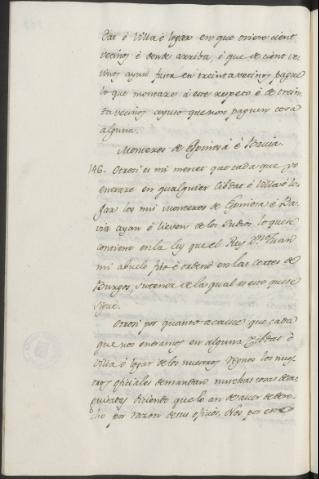 Cdat ó Villa ó logar en que oviere cient
vecinos é dende arriba, é que de cient ve
cinos ayuso fasta en treinta vecinos paguen
lo que montare á este respeto é de trein
ta vecinos ayuso que non paguen cosa
alguna.
Monteros de Espinosa é Bavia.
146. Otrosi es mi merced que cada que yo
entrare en qualquier Cibdat ó Villa ó lo
gar los mis monteros de Espinosa é Ba
via ayan é lieven de los Judios lo que se
contiene en la ley que el Rey Dn. Juan
mi abuelo fizo é ordenó en las Cortes de
Burgos, su tenor de la qual es este que se
sigue.
Otrosi por quanto acaece que cada
que nos entramos en alguna Cibdat ó
Villa ó logar de los nuestros Regnos los nues
tros oficiales demandan muchas cosas desa
guisadas diciendo que lo an de aver de dere
cho por razon de sus oficios. Nos por ende